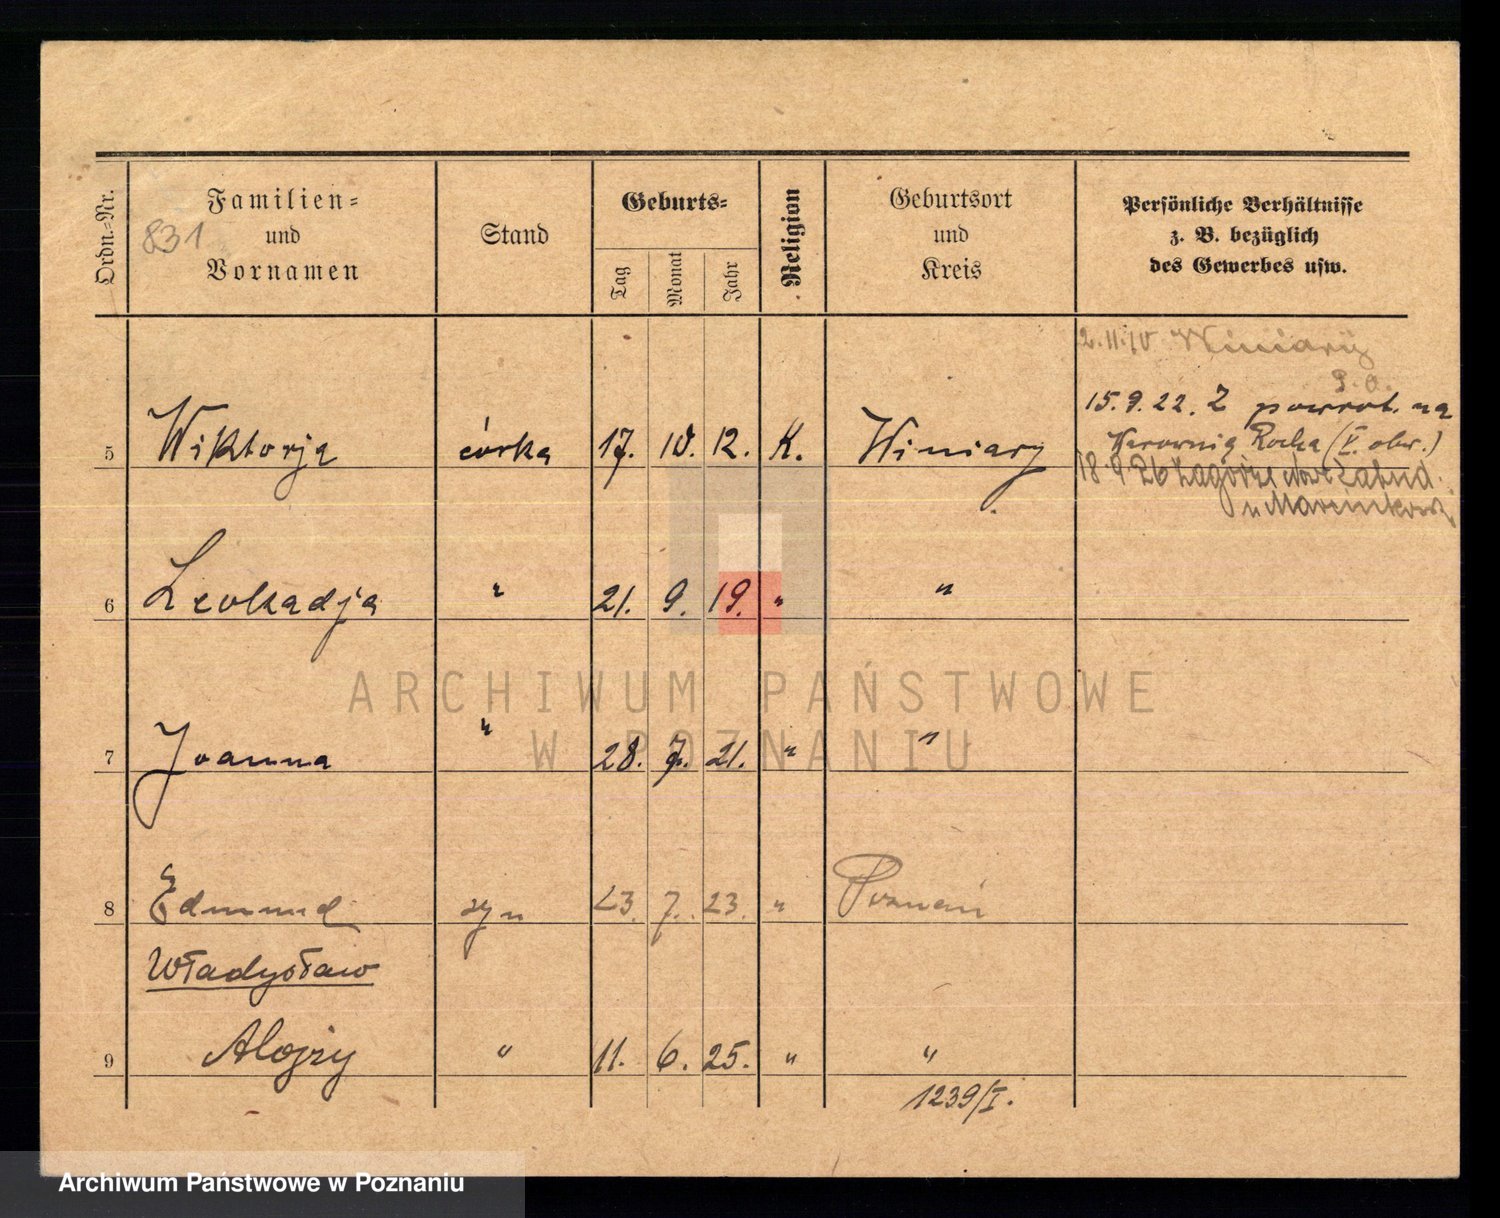 Ordn.-Nr.
Familien-
und
Vornamen
831
Stand
Geburts-
Tag
Monat
Jahr
Religion
Geburtsort
und
Kreis
Persönliche Verhältnisse
z. B. bezüglich
des Gewerbes usw.
2.11.10 Winiary
15.9.22. Z powrot. na
Rocha (V. obw.)
5 Wiktorja córka 17. 10. 12. K. Winiary
18.9.26 Zagórze
u Marcinkowski
6 Leokadja " 21. 9. 19. " "
7 Joanna " 28. 7. 21. " "
8 Edmund syn 23. 7. 23. " Poznań
Władysław
9 Alojzy " 11. 6. 25. " "
1239/I.
ARCHIWUM PAŃSTWOWE
W POZNANIU
Archiwum Państwowe w Poznaniu